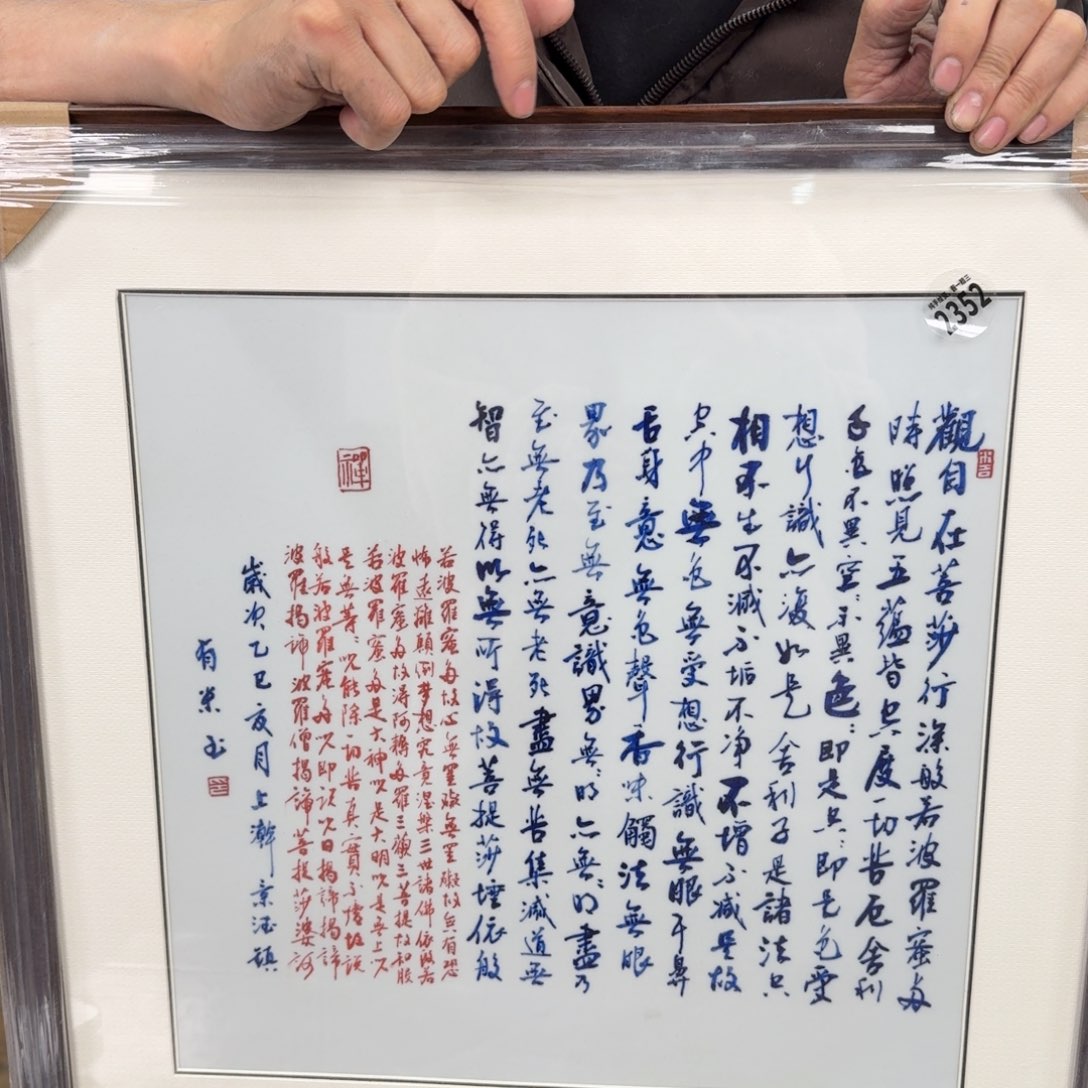 2352
觀自在菩莎行深般若波羅蜜多
時照見五蘊皆空度一切苦厄舍利
子色不異空:不異色:即是空:即是色受
想行識亦復如是舍利子是諸法空
相不生不滅不垢不净不增不減是故
空中無色無受想行識無眼耳鼻
舌身意無色聲香味觸法無眼
界乃至無意識界無:明亦無:明盡乃
至無老死亦無老死盡無苦集滅道無
智亦無得以無所得故菩提莎埵依般
禪
若波羅蜜多故心無罣礙無罣礙故無有恐
怖遠離顛倒夢想究竟涅槃三世諸佛依般若
波羅蜜多故得阿耨多羅三藐三菩提故知般
若波羅蜜多是大神咒是大明咒是無上咒
是無等:咒能除一切苦真實不虛故說
般若波羅蜜多咒即說咒曰揭諦揭諦
波羅揭諦波羅僧揭諦菩提莎婆訶
歲次乙巳夏月上澣景德鎮
有
书